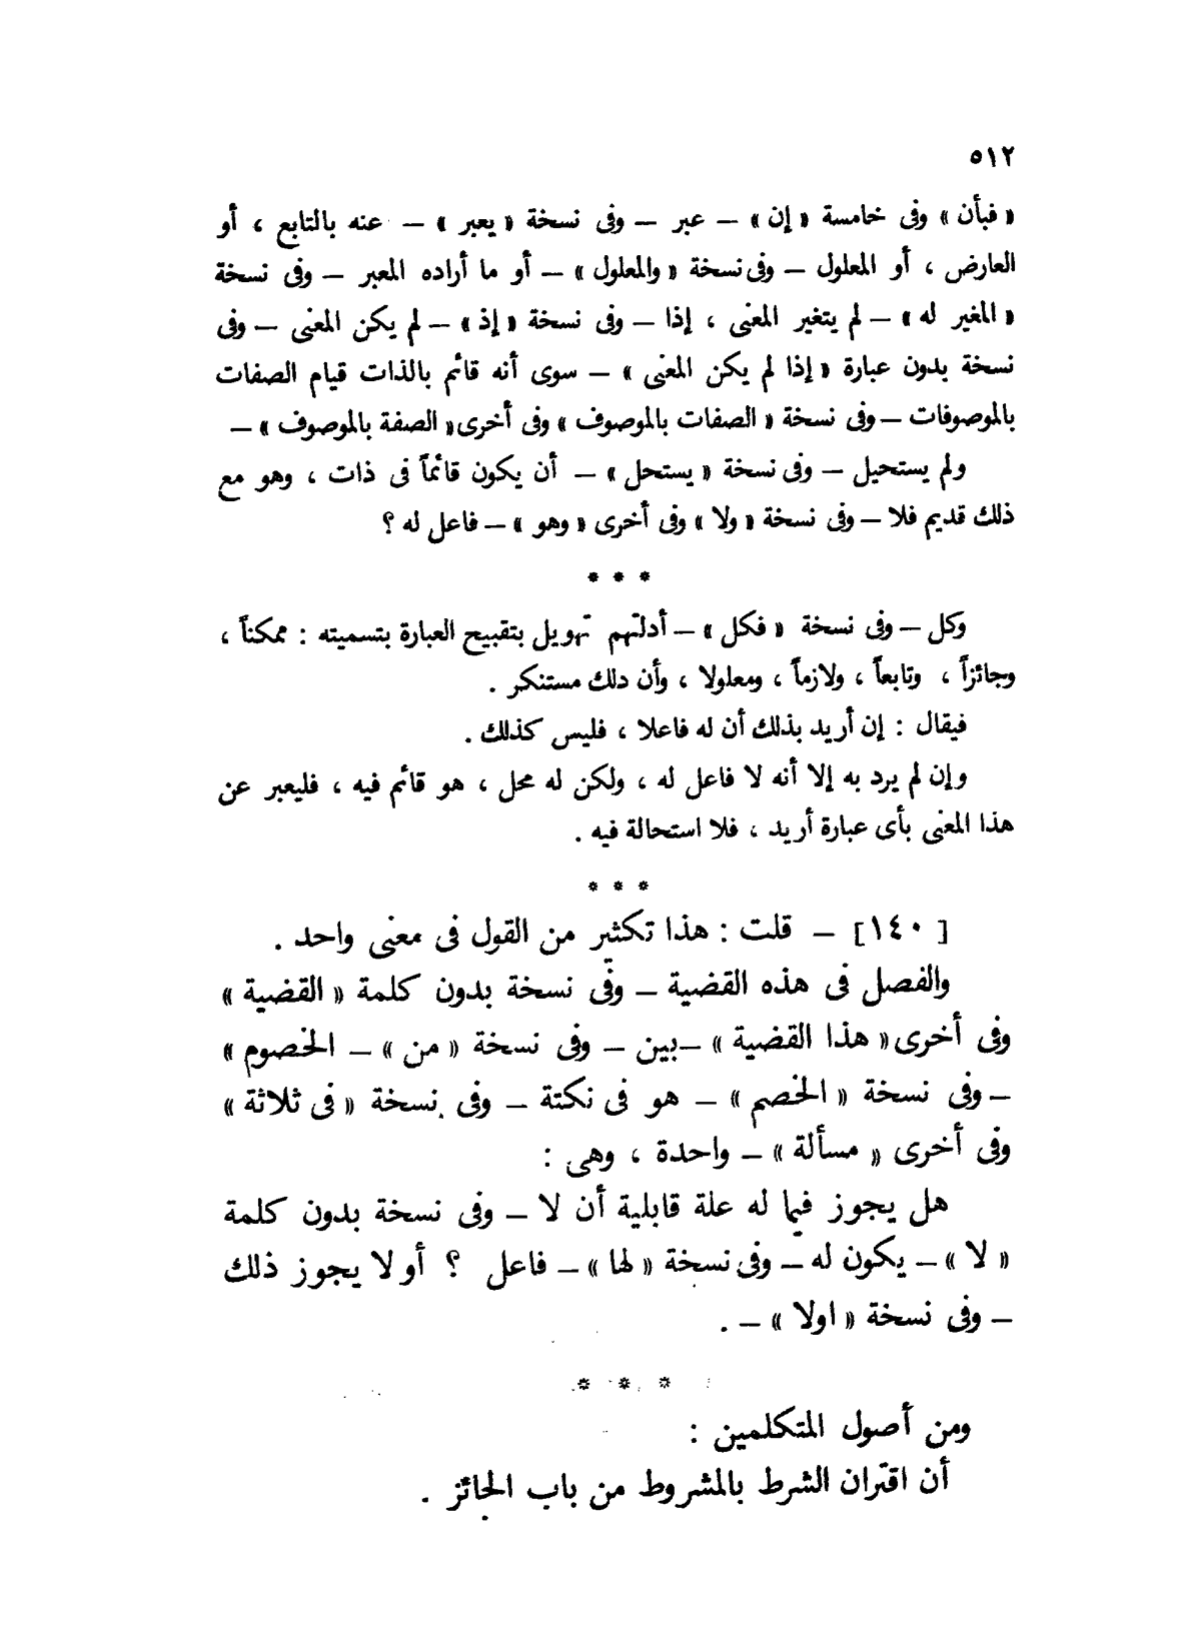 ٥١٢
« فبأن » وفى خامسة « إن » – عبر – وفى نسخة « يعبر » – عنه بالتابع ، أو
العارض ، أو المعلول – وفى نسخة « والمعلول » – أو ما أراده المعبر – وفى نسخة
« المغير له » – لم يتغير المعنى ، إذا – وفى نسخة « إذ » – لم يكن المعنى – وفى
نسخة بدون عبارة « إذا لم يكن المعنى » – سوى أنه قائم بالذات قيام الصفات
بالموصوفات – وفى نسخة « الصفات بالموصوف » وفى أخرى « الصفة بالموصوف » –
ولم يستحيل – وفى نسخة « يستحل » – أن يكون قائماً فى ذات ، وهو مع
ذلك قديم فلا – وفى نسخة « ولا » وفى أخرى « وهو » – فاعل له ؟
* * *
وكل – وفى نسخة « فكل » – أدلتهم تهويل بتقبيح العبارة بتسميته : ممكناً ،
وجائزاً ، وتابعاً ، ولازماً ، ومعلولا ، وأن دلك مستنكر .
فيقال : إن أريد بذلك أن له فاعلا ، فليس كذلك .
وإن لم يرد به إلا أنه لا فاعل له ، ولكن له محل ، هو قائم فيه ، فليعبر عن
هذا المعنى بأى عبارة أريد ، فلا استحالة فيه .
* * *
[ ١٤٠ ] – قلت : هذا تكثير من القول فى معنى واحد .
والفصل فى هذه القضية – وفى نسخة بدون كلمة « القضية »
وفى أخرى « هذا القضية » – بين – وفى نسخة « من » – الخصوم »
– وفى نسخة « الخصم » – هو فى نكتة – وفى نسخة « فى ثلاثة »
وفى أخرى « مسألة » – واحدة ، وهى :
هل يجوز فيما له علة قابلية أن لا – وفى نسخة بدون كلمة
« لا » – يكون له – وفى نسخة « لها » – فاعل ؟ أو لا يجوز ذلك
– وفى نسخة « اولا » – .
* * *
ومن أصول المتكلمين :
أن اقتران الشرط بالمشروط من باب الجائز .